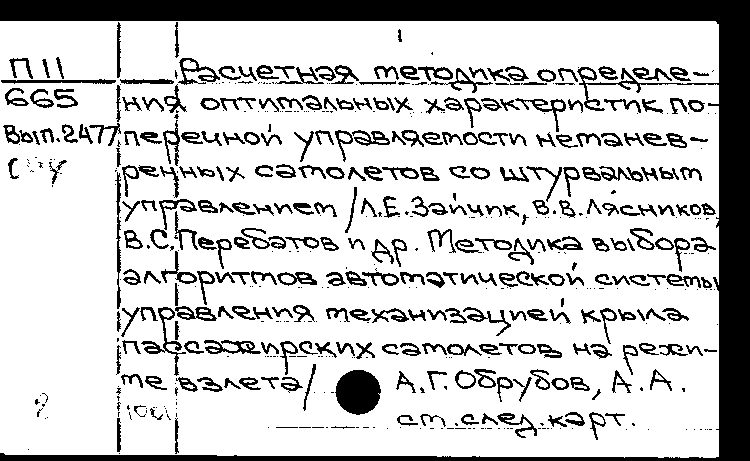 1
П 11
665
Вып.2477
Расчетная методика определе-
ния оптимальных характеристик по-
перечной управляемости неманев-
ренных самолетов со штурвальным
управлением / Л.Е.Зайчик, В.В.Лясников,
В.С.Перебатов и др. Методика выбора
алгоритмов автоматической системы
управления механизацией крыла
пассажирских самолетов на режи-
ме взлета / А.Г.Обрубов, А.А.
см.след.карт.
2